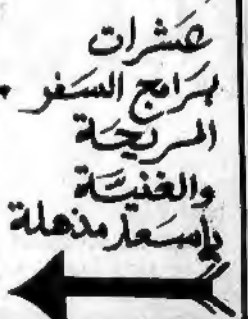 عشرات
برامج السفر
المريحة
والغنية
بأسعار مذهلة